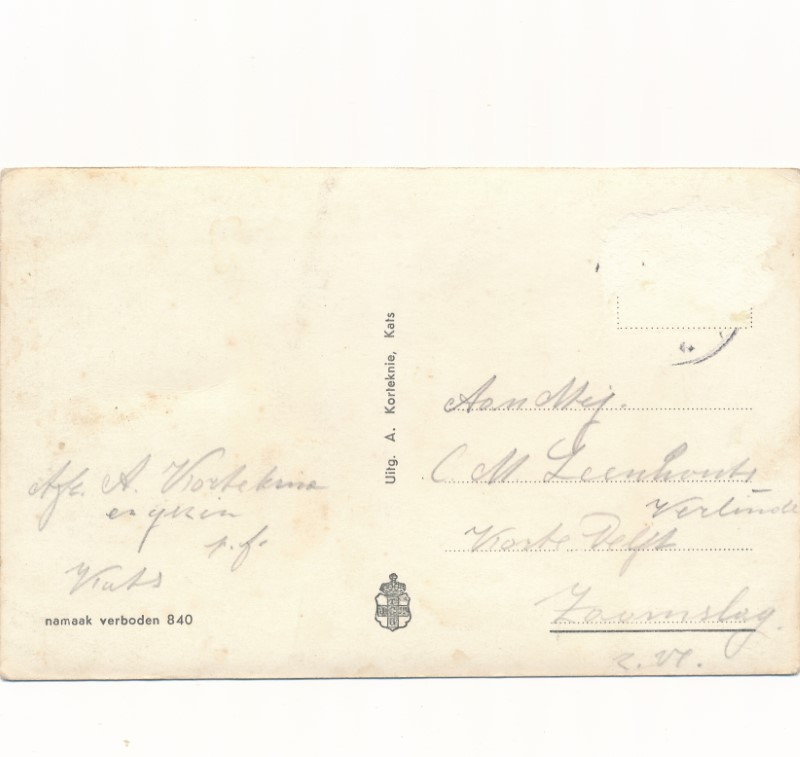 Afz. A. Korteknie
en gezin
p.f.
Kats
namaak verboden 840
Uitg. A. Korteknie, Kats
Aan Mej.
C. M. Leenhouts
Verlinde
Korte Delft
Zaamslag.
z. Vl.